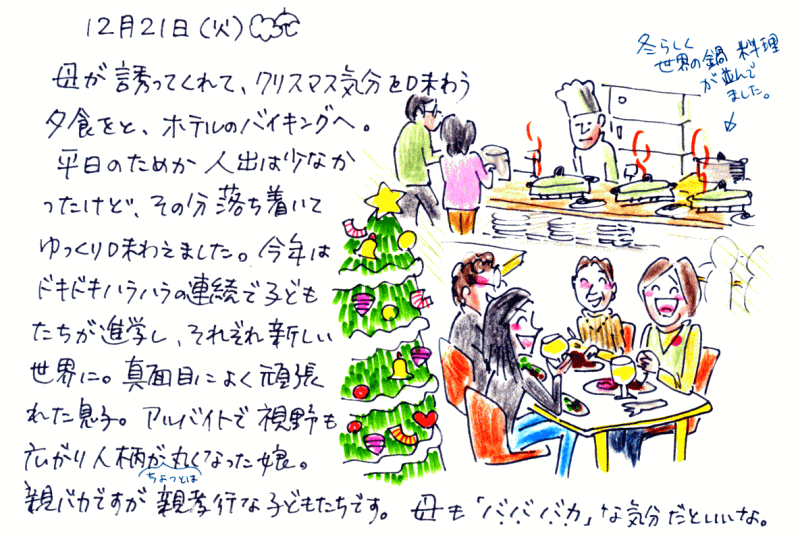 12月21日(火)
母が誘ってくれて、クリスマス気分を味わう
夕食をと、ホテルのバイキングへ。
平日のためか人出は少なか
ったけど、その分落ち着いて
ゆっくり味わえました。今年は
ドキドキハラハラの連続で子ども
たちが進学し、それぞれ新しい
世界に。真面目によく頑張
れた息子。アルバイトで視野も
広がり人柄が丸くなった娘。
ちょっとは
親バカですが親孝行な子どもたちです。母も「ババババカ」な気分だといいな。
冬らしく
世界の鍋料理
が並んで
ました。